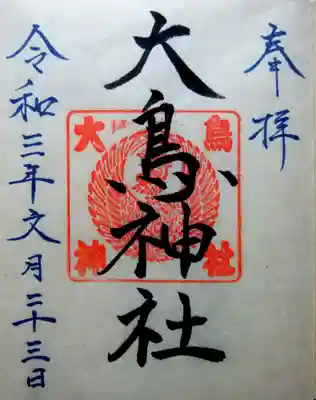 奉拝
大鳥神社
大鳥神社
令和三年文月二十三日